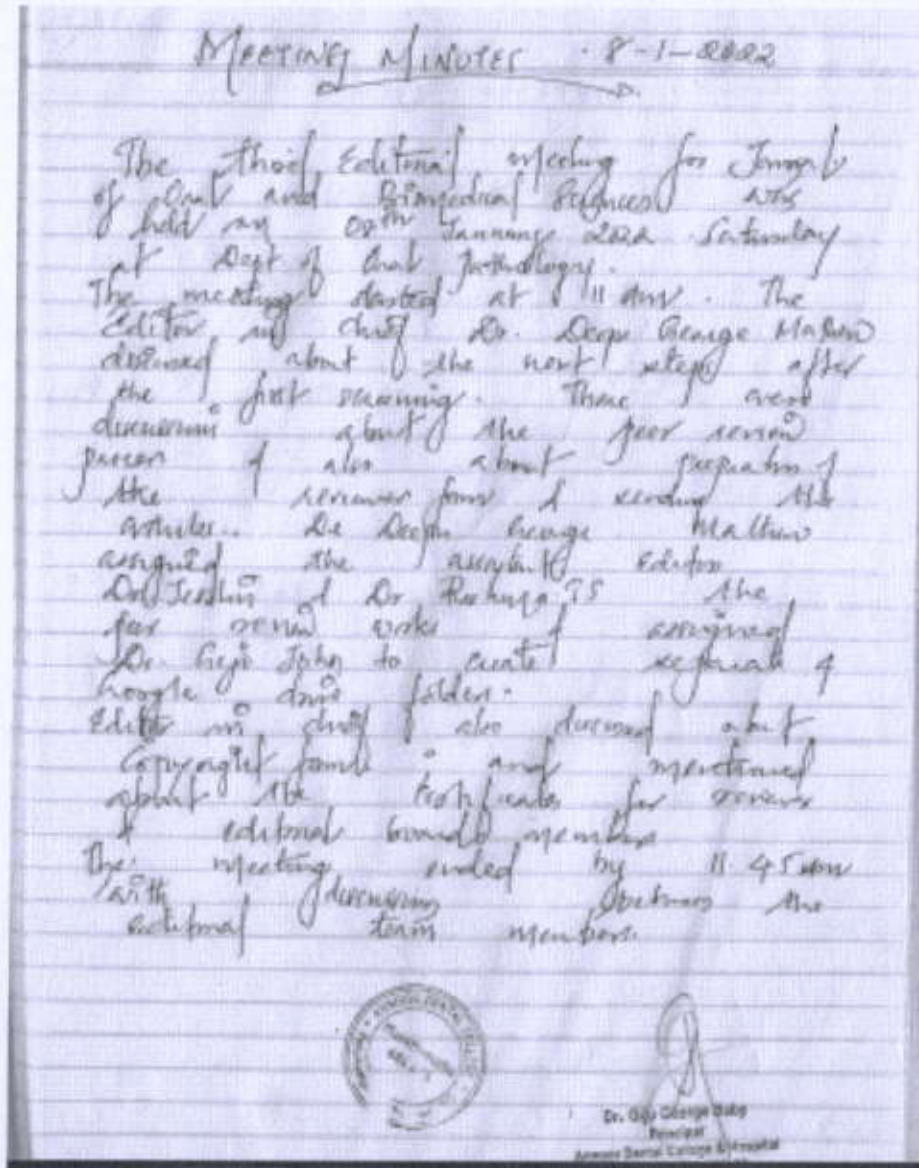 MEETING MINUTES . 8-1-2022
The third Editorial meeting for Journal
of Oral and Biomedical Sciences was
held on 08th January 2022 Saturday
at Dept of Oral Pathology.
The meeting started at 11 am. The
Editor in chief Dr. Deepu George Mathew
discussed about the next steps after
the first screening. There were
discussion about the peer review
process & also about preparation of
the reviewer form & sending the
articles.. Dr Deepu George Mathew
assigned the assistant editors
Dr & Dr the
peer review works & assigned
Dr. John to create separate 4
Google drive folder.
Editor in chief also discussed about
Copyright forms and mentioned
about the certificates for reviewers
& editorial board members
The meeting ended by 11.45 am
with discussing between the
editorial team members.
DENTAL COLLEGE
Dr. Giju George Baby
Principal
Dental College & Hospital